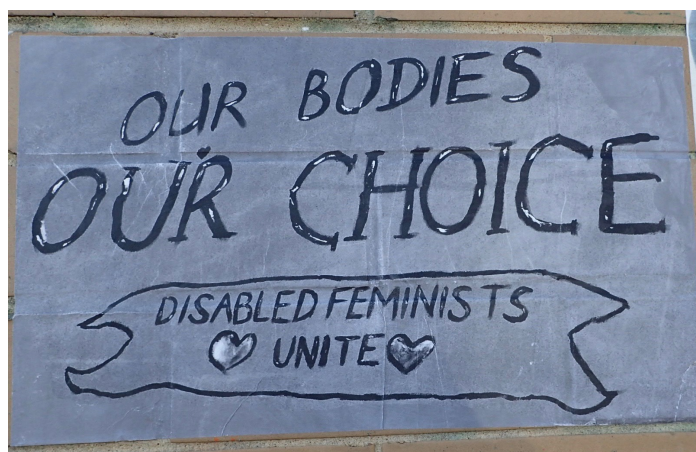 OUR BODIES
OUR CHOICE
DISABLED FEMINISTS
UNITE